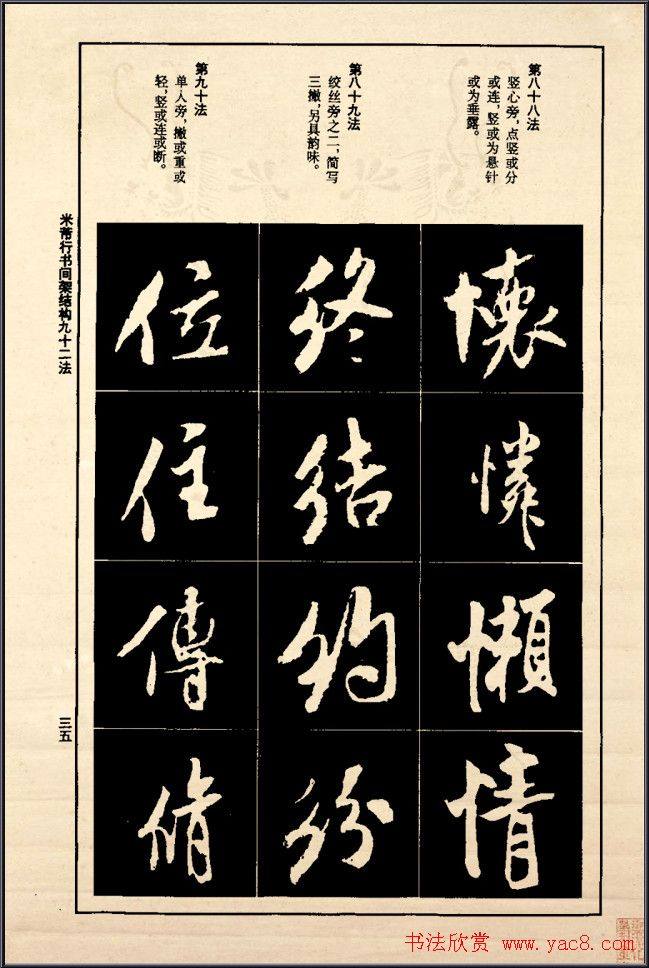 第八十八法
竖心旁，点竖或分
或连，竖或为悬针
或为垂露。
懷
憐
懶
情
第八十九法
绞丝旁之二，简写
三撇，另具韵味。
终
结
约
纷
第九十法
单人旁，撇或重或
轻，竖或连或断。
位
住
傳
脩
米芾行书间架结构九十二法
三五
书法欣赏 www.yac8.com